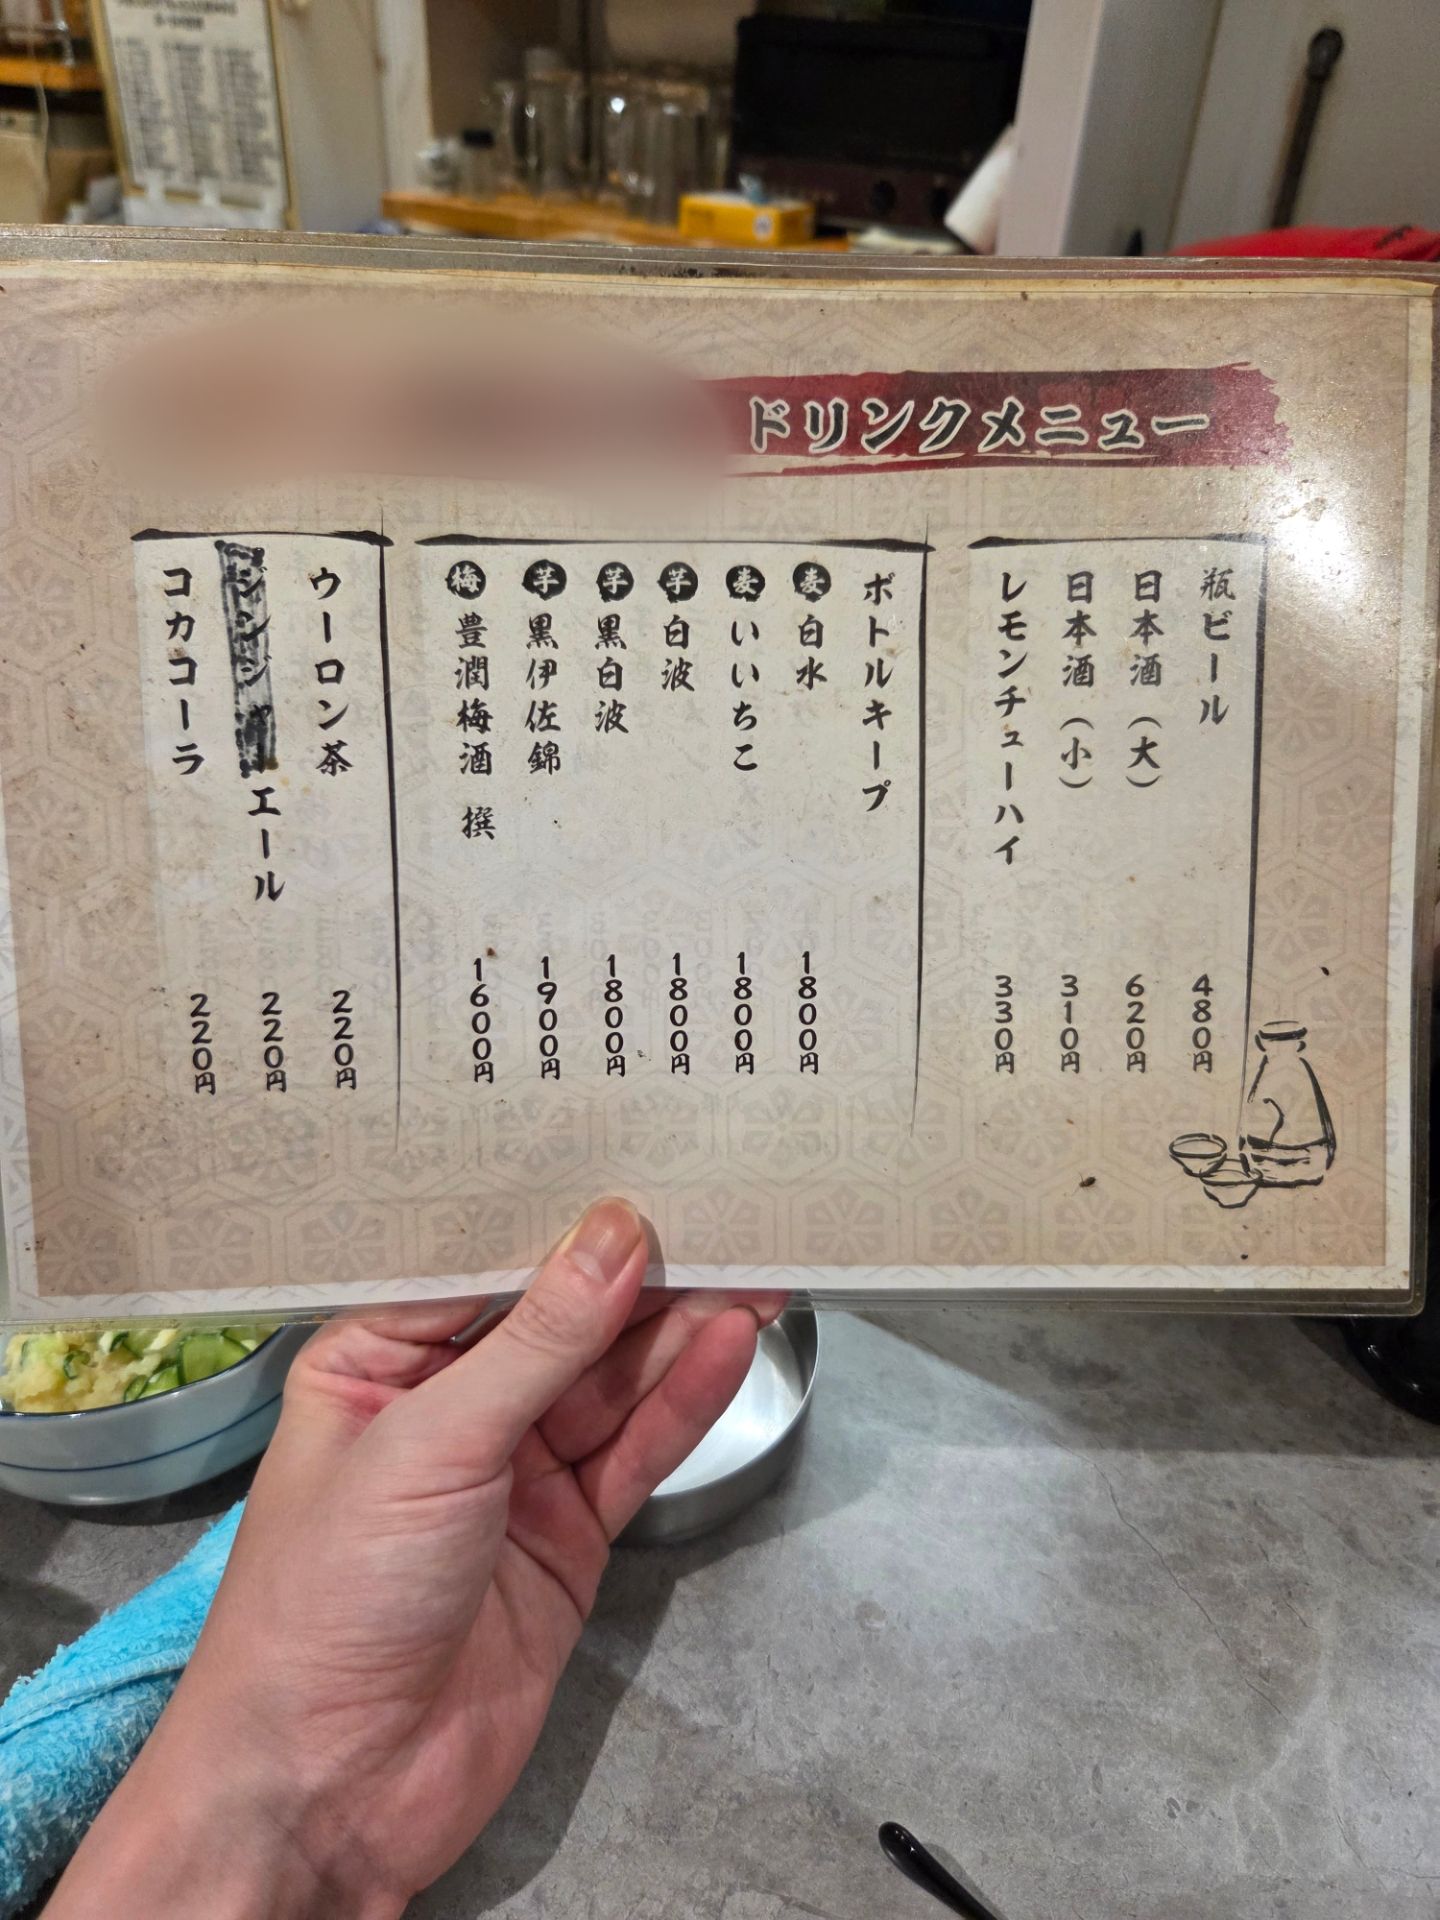 ドリンクメニュー
瓶ビール 480円
日本酒(大) 620円
日本酒(小) 310円
レモンチューハイ 330円
ボトルキープ
麦 白水 1800円
麦 いいちこ 1800円
芋 白波 1800円
芋 黒白波 1800円
芋 黒伊佐錦 1900円
梅 豊潤梅酒 撰 1600円
ウーロン茶 220円
ジンジャーエール 220円
コカコーラ 220円